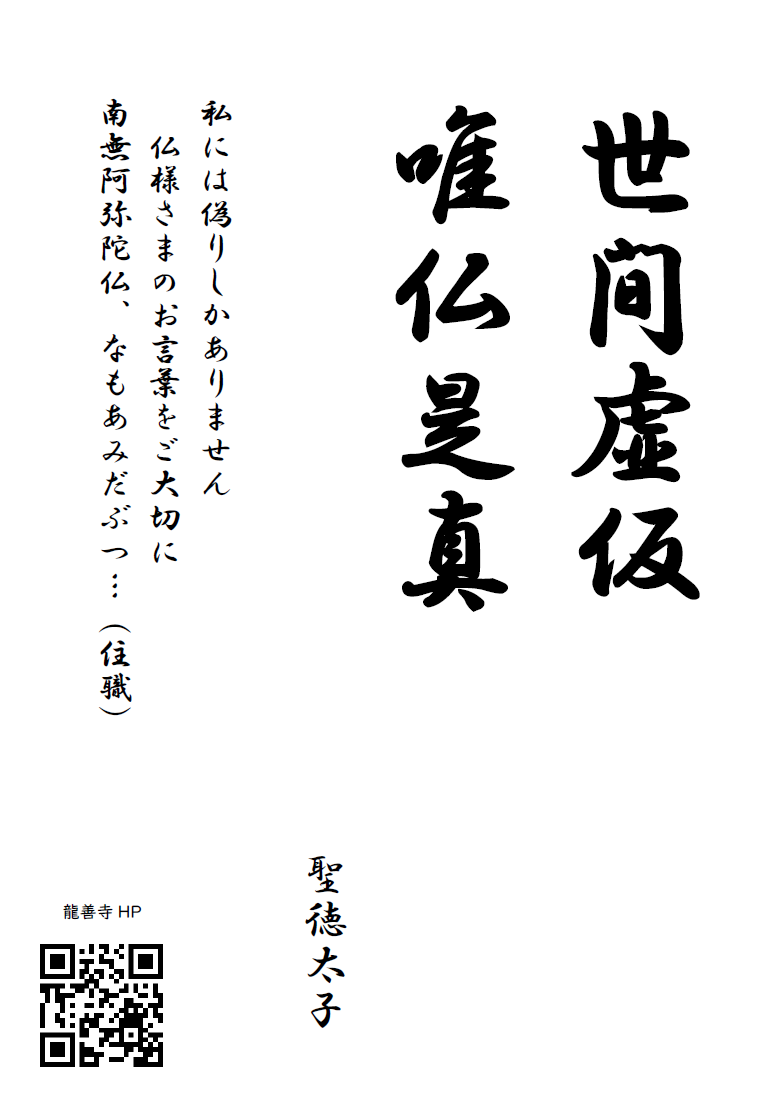 世間虚仮
唯仏是真
聖徳太子
私には偽りしかありません
仏様さまのお言葉をご大切に
南無阿弥陀仏、なもあみだぶつ…(住職)
龍善寺 HP